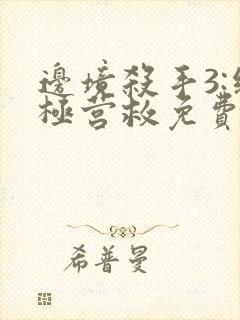 邊境殺手3:終
極營救免費
希普曼